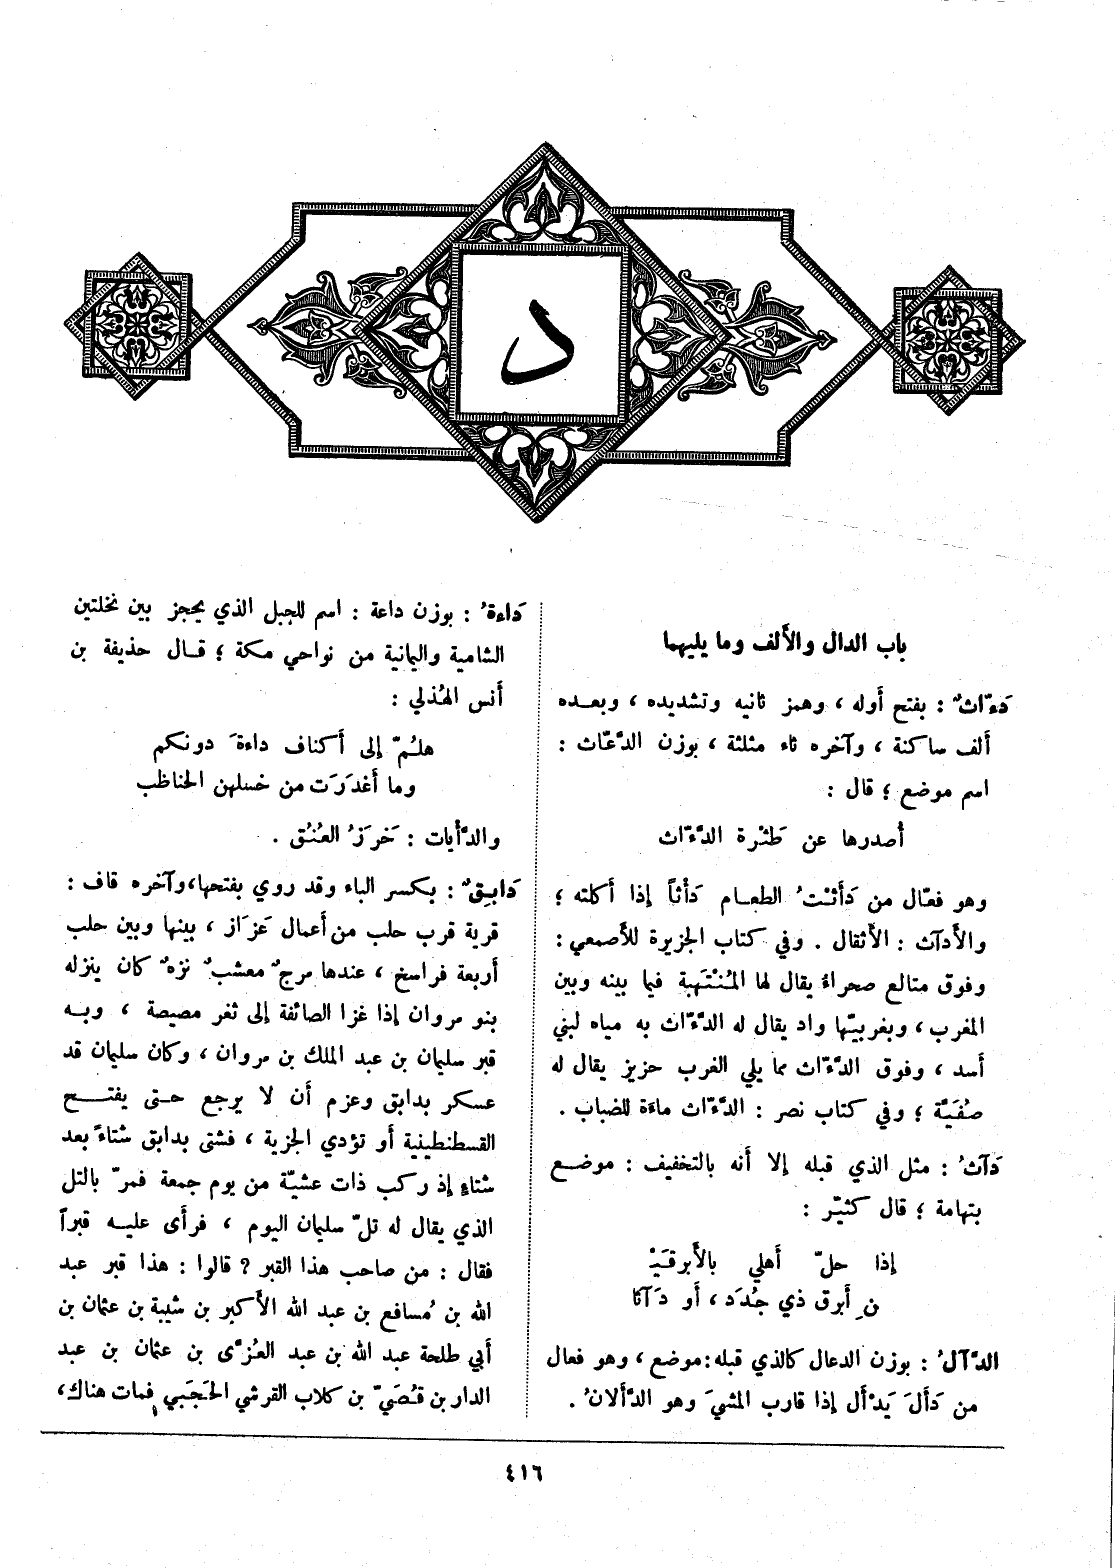 د
باب الدال والألف وما يليهما
دءّاثٌ : بفتح أوله ، وهمز ثانيه وتشديده ، وبعده
ألف ساكنة ، وآخره ثاء مثلثة ، بوزن الدعّاث :
اسم موضع ؛ قال :
أصدرها عن طَثْرة الدَّءّاث
وهو فعّال من دَأَثْتُ الطعام دَأْثاً إذا أكلته ؛
والأدآث : الأثقال . وفي كتاب الجزيرة للأصمعي :
وفوق متالع صحراءُ يقال لها المُنْتَهَبة فيما بينه وبين
المغرب ، وبغربيّها واد يقال له الدَّءّاث به مياه لبني
أسد ، وفوق الدَّءّاث مما يلي الغرب حزيز يقال له
صُفَيَّة ؛ وفي كتاب نصر : الدَّءّاث ماءَة للضباب .
دَآثُ : مثل الذي قبله إلا أنه بالتخفيف : موضع
بتهامة ؛ قال كثيّر :
إذا حلّ أهلي بالأبرقَيْ
نِ أبرق ذي جُدَد ، أو دَآثا
الدَّآلُ : بوزن الدعال كالذي قبله : موضع ، وهو فعال
من دَأَلَ يَدْأَل إذا قارب المشيَ وهو الدَّأَلانُ .
دَاءةُ : بوزن داعة : اسم للجبل الذي يحجز بين نخلتين
الشامية واليمانية من نواحي مكة ؛ قال حذيفة بن
أنس الهُذلي :
هلُمّ إلى أكناف داءةَ دونكم
وما أغدَرَت من خسلهن الحناظب
والدَّأَيات : خَرَزُ العُنُق .
دَابِقٌ : بكسر الباء وقد روي بفتحها، وآخره قاف :
قرية قرب حلب من أعمال عَزَاز ، بينها وبين حلب
أربعة فراسخ ، عندها مرجٌ معشبٌ نزهٌ كان ينزله
بنو مروان إذا غزا الصائفة إلى ثغر مصيصة ، وبه
قبر سليمان بن عبد الملك بن مروان ، وكان سليمان قد
عسكر بدابق وعزم أن لا يرجع حتى يفتح
القسطنطينية أو تؤدي الجزية ، فشتى بدابق شتاءً بعد
شتاءٍ إذ ركب ذات عشيّة من يوم جمعة فمرّ بالتل
الذي يقال له تلّ سليمان اليوم ، فرأى عليه قبراً
فقال : من صاحب هذا القبر ؟ قالوا : هذا قبر عبد
الله بن مُسافع بن عبد الله الأكبر بن شيبة بن عثمان بن
أبي طلحة عبد الله بن عبد العُزَّى بن عثمان بن عبد
الدار بن قُصَيّ بن كلاب القرشي الحَجَبي فمات هناك،
٤١٦